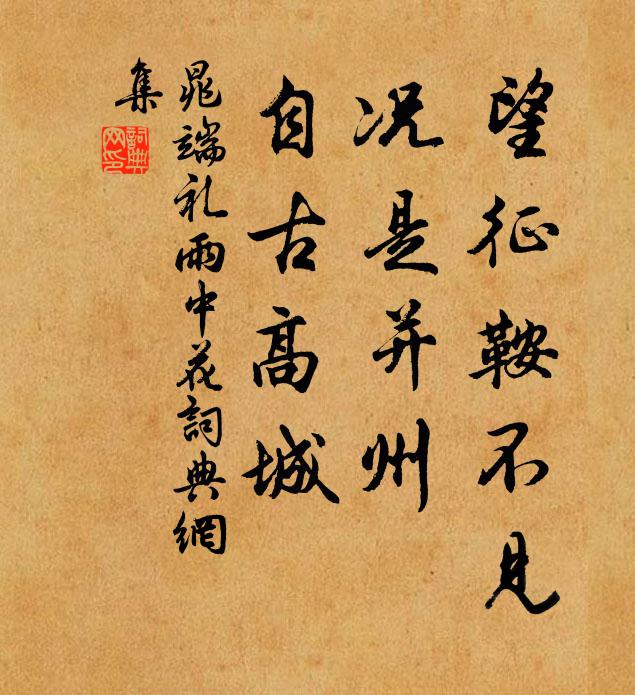 望征鞍不见
况是并州
自古高城
晁端礼雨中花詞典網
集
詞典
网印